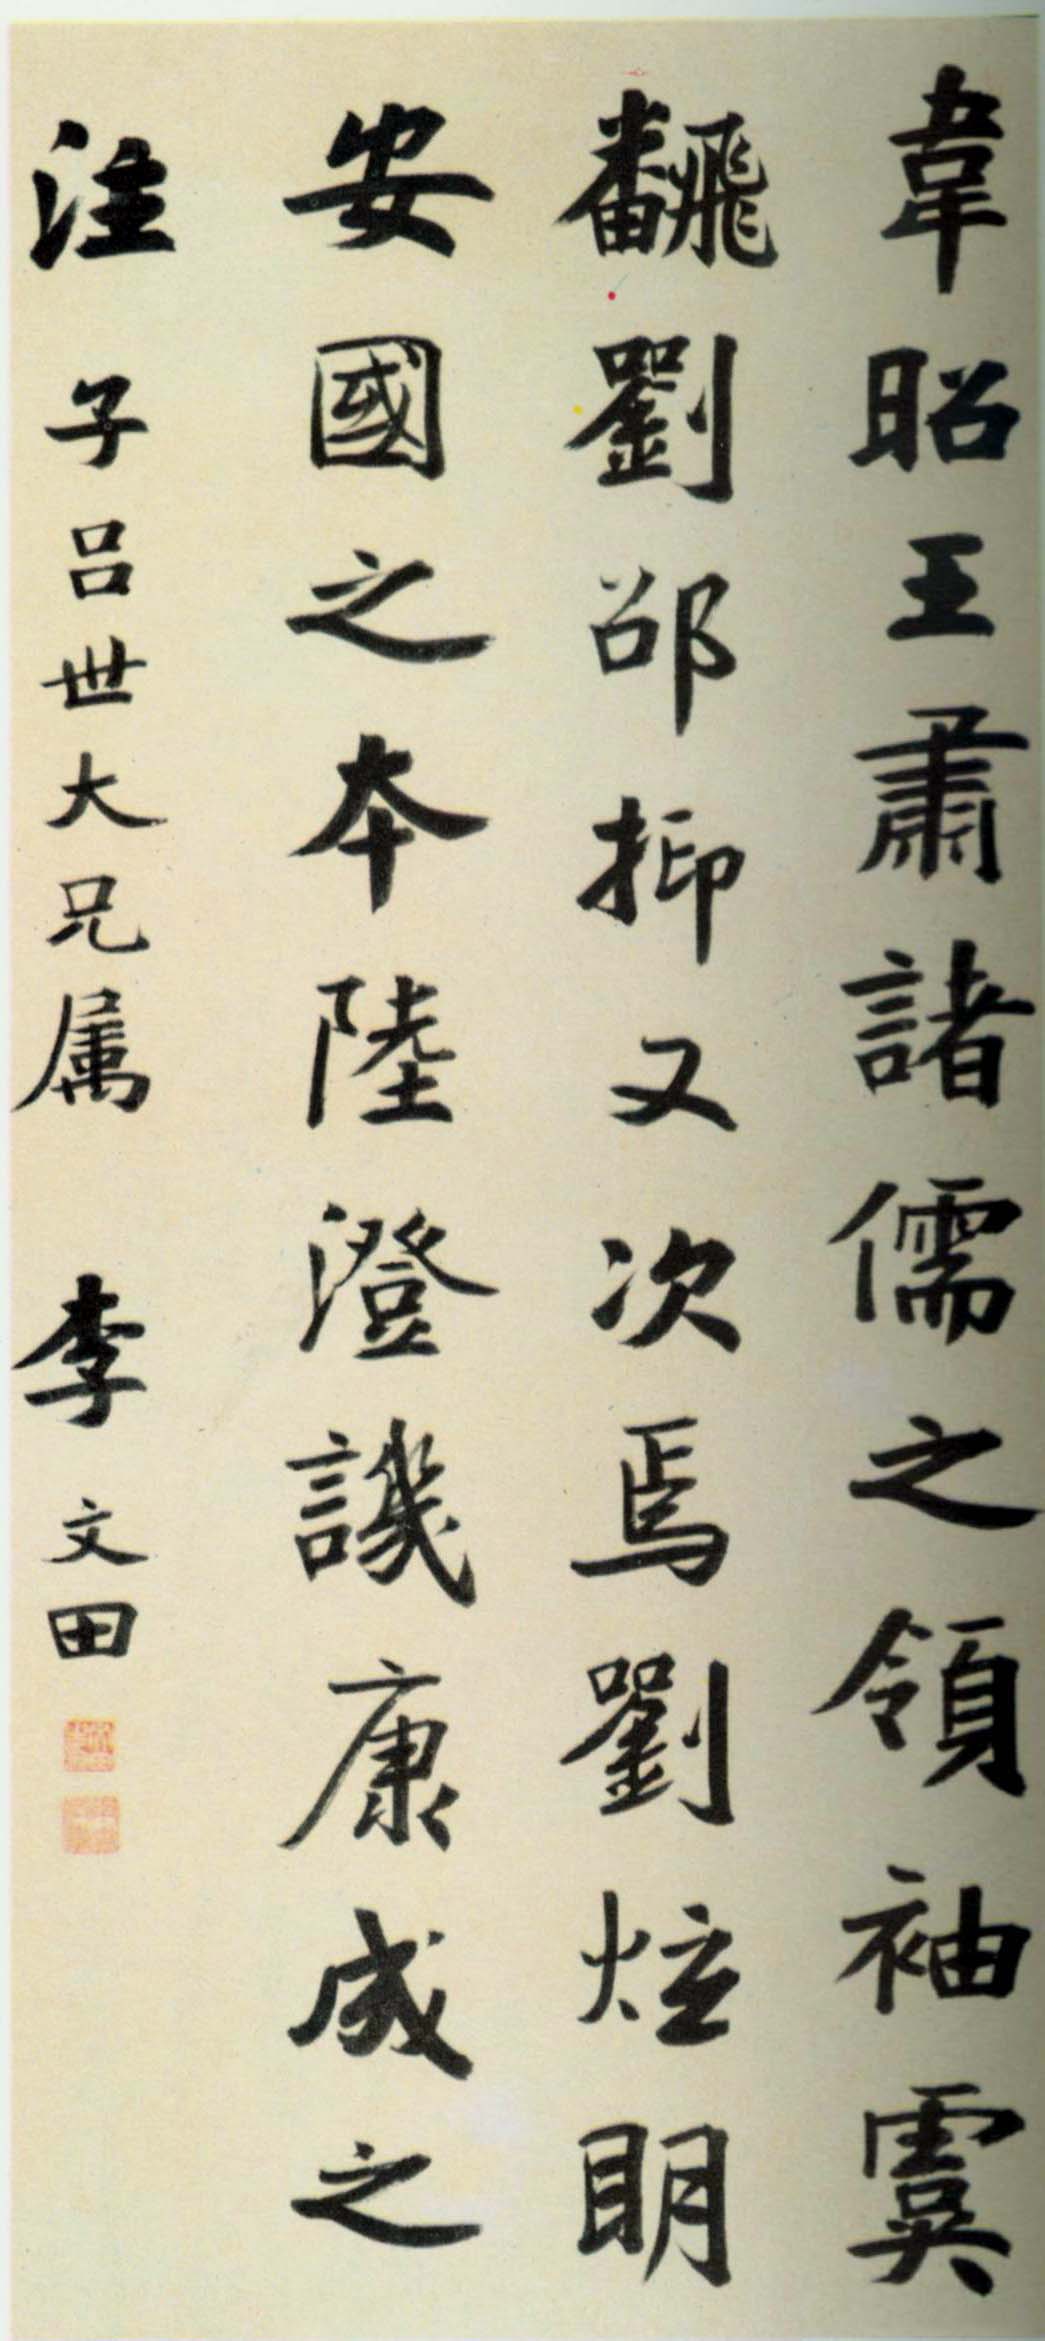 韋昭王肅諸儒之領袖虞
飜劉邵抑又次焉劉炫明
安國之本陸澄譏康成之
注 子呂世大兄属 李文田